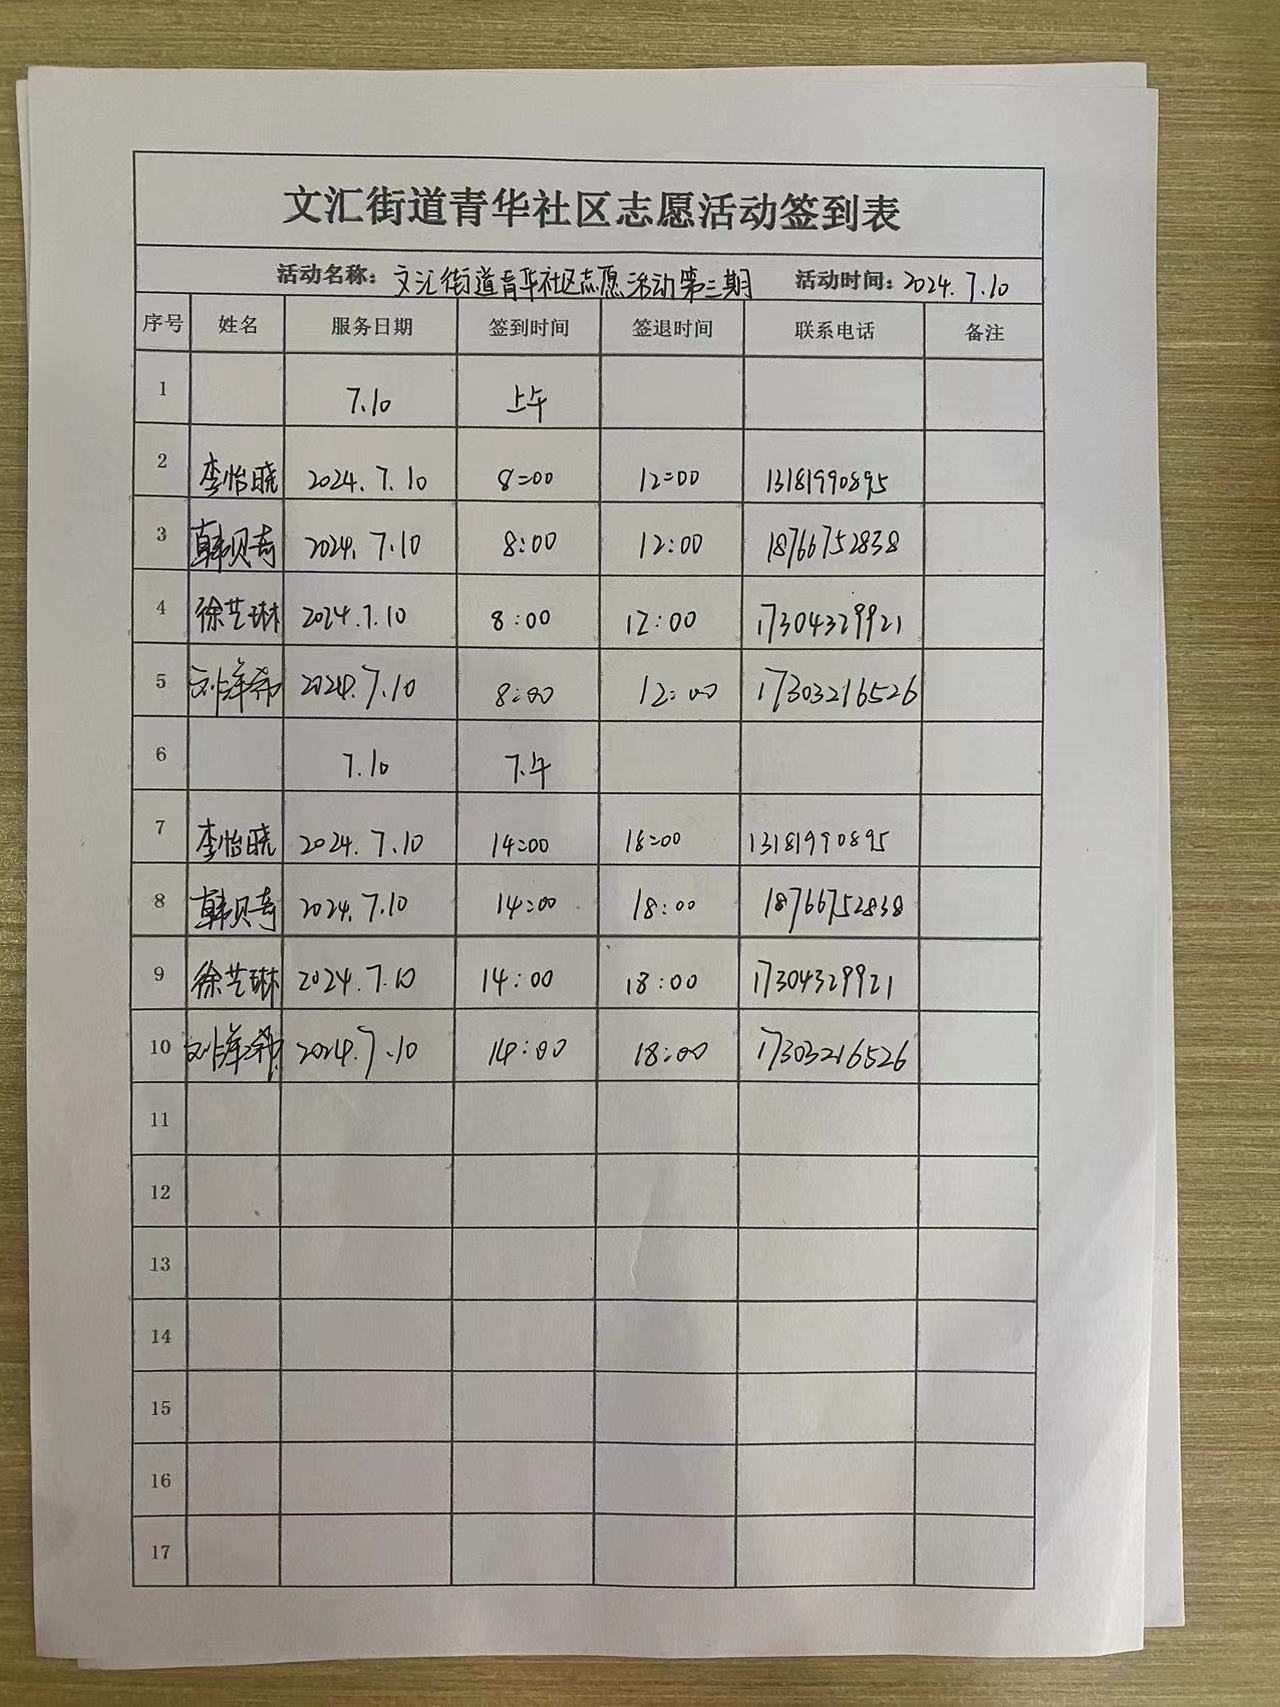 文汇街道青华社区志愿活动签到表
活动名称：文汇街道青华社区志愿活动第三期 活动时间：2024.7.10
序号 姓名 服务日期 签到时间 签退时间 联系电话 备注
1 7.10 上午
2 李怡晓 2024.7.10 8:00 12:00 13181990895
3 韩贝奇 2024.7.10 8:00 12:00 18766752838
4 徐艺琳 2024.7.10 8:00 12:00 17304329921
5 刘洋希 2024.7.10 8:00 12:00 17303216526
6 7.10 下午
7 李怡晓 2024.7.10 14:00 18:00 13181990895
8 韩贝奇 2024.7.10 14:00 18:00 18766752838
9 徐艺琳 2024.7.10 14:00 18:00 17304329921
10 刘洋希 2024.7.10 14:00 18:00 17303216526
11
12
13
14
15
16
17